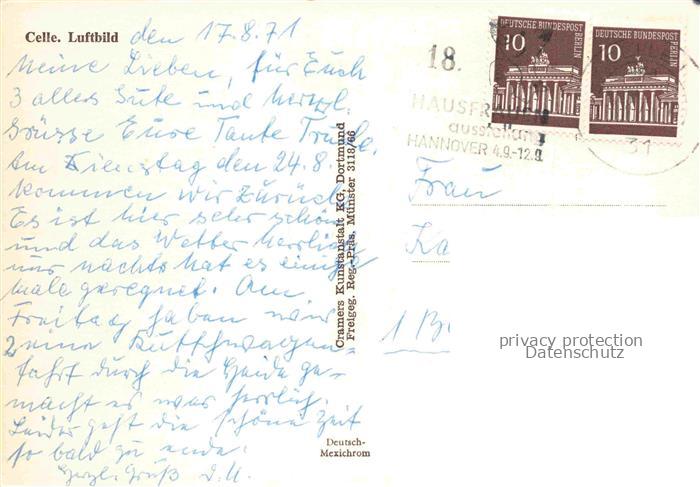 Celle. Luftbild den 17.8.71
Meine Lieben, für Euch
3 alles Gute und herzl.
Grüsse Eure Tante Trude.
Am Dienstag den 24.8.
kommen wir zurück.
Es ist hier sehr schön
und das Wetter herrlich
nur nachts hat es einige
male geregnet. Am
Freitag haben wir
eine Kutschwagen-
fahrt durch die Heide ge-
macht es war herrlich.
Leider geht die schöne Zeit
so bald zu ende.
Herzl. Gruß D. U.
Cramers Kunstanstalt KG. Dortmund
Freigeg. Reg.-Präs. Münster 3118/66
Deutsch-
Mexichrom
DEUTSCHE BUNDESPOST
BERLIN
10
DEUTSCHE BUNDESPOST
BERLIN
10
18.
HAUSFR
ausstell
HANNOVER 4.9.-12.9.
31
Frau
Ka
1 Be
privacy protection
Datenschutz